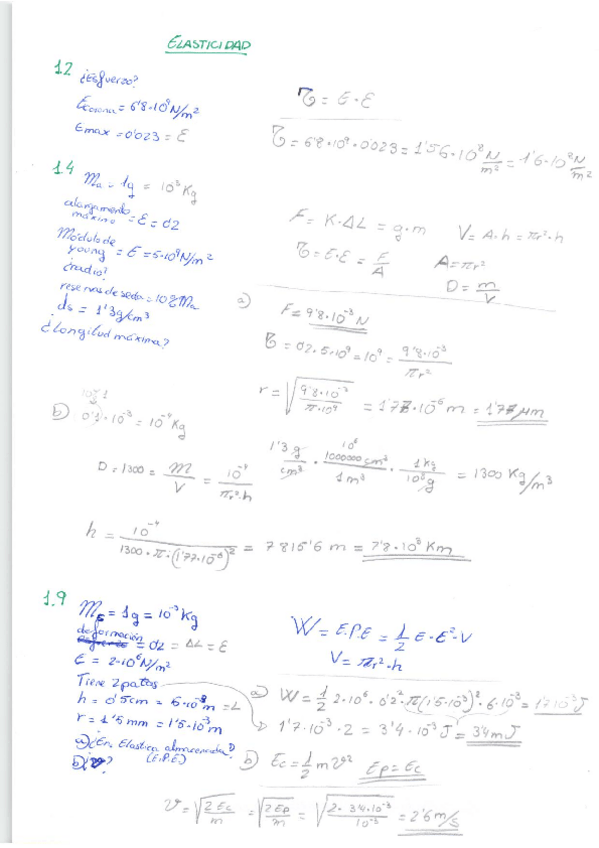 ELASTICIDAD
1.2 ¿Esfuerzo?
= 6'8·10⁹ N/m²
Emax = 0'023 = ε
σ = E·ε
σ = 6'8·10⁹·0'023 = 1'56·10⁸ N/m² = 1'6·10⁸ N/m²
1.4 Ma = 1g = 10⁻³ Kg
alargamiento máximo = ε = 0'2
Módulo de young = E = 5·10⁹ N/m²
¿radio?
reservas de seda = 10% Ma
ds = 1'3 g/cm³
¿Longitud máxima?
F = K·ΔL = g·m V = A·h = πr²·h
σ = E·ε = F/A A = πr²
D = m/V
a) F = 9'8·10⁻³ N
σ = 0'2·5·10⁹ = 10⁹ = 9'8·10⁻³/πr²
r = √(9'8·10⁻³/π·10⁹) = 1'77·10⁻⁶ m = 1'77 μm
b) 0'1·10⁻³ = 10⁻⁴ Kg
D = 1300 = m/V = 10⁻⁴/πr²·h
1'3 g/cm³ · 1000000 cm³/1 m³ · 1 Kg/10³ g = 1300 Kg/m³
h = 10⁻⁴/1300·π·(1'77·10⁻⁶)² = 7815'6 m = 7'8·10³ Km
1.9 ME = 1g = 10⁻³ Kg
deformación = 0'2 = ΔL = ε
E = 2·10⁶ N/m²
Tiene 2 patas
h = 0'5 cm = = L
r = 1'5 mm = 1'5·10⁻³ m
a) ¿En. Elastica almacenada?
(E.P.E)
b) ¿v?
W = E.P.E = 1/2 E·ε²·V
V = πr²·h
a) W = 1/2 2·10⁶·0'2²·π(1'5·10⁻³)²·6·10⁻³ = 1'7·10⁻³ J
1'7·10⁻³·2 = 3'4·10⁻³ J = 3'4 mJ
b) Ec = 1/2 m v² Ep = Ec
v = √(2Ec/m) = √(2Ep/m) = √(2·3'4·10⁻³/10⁻³) = 2'6 m/s